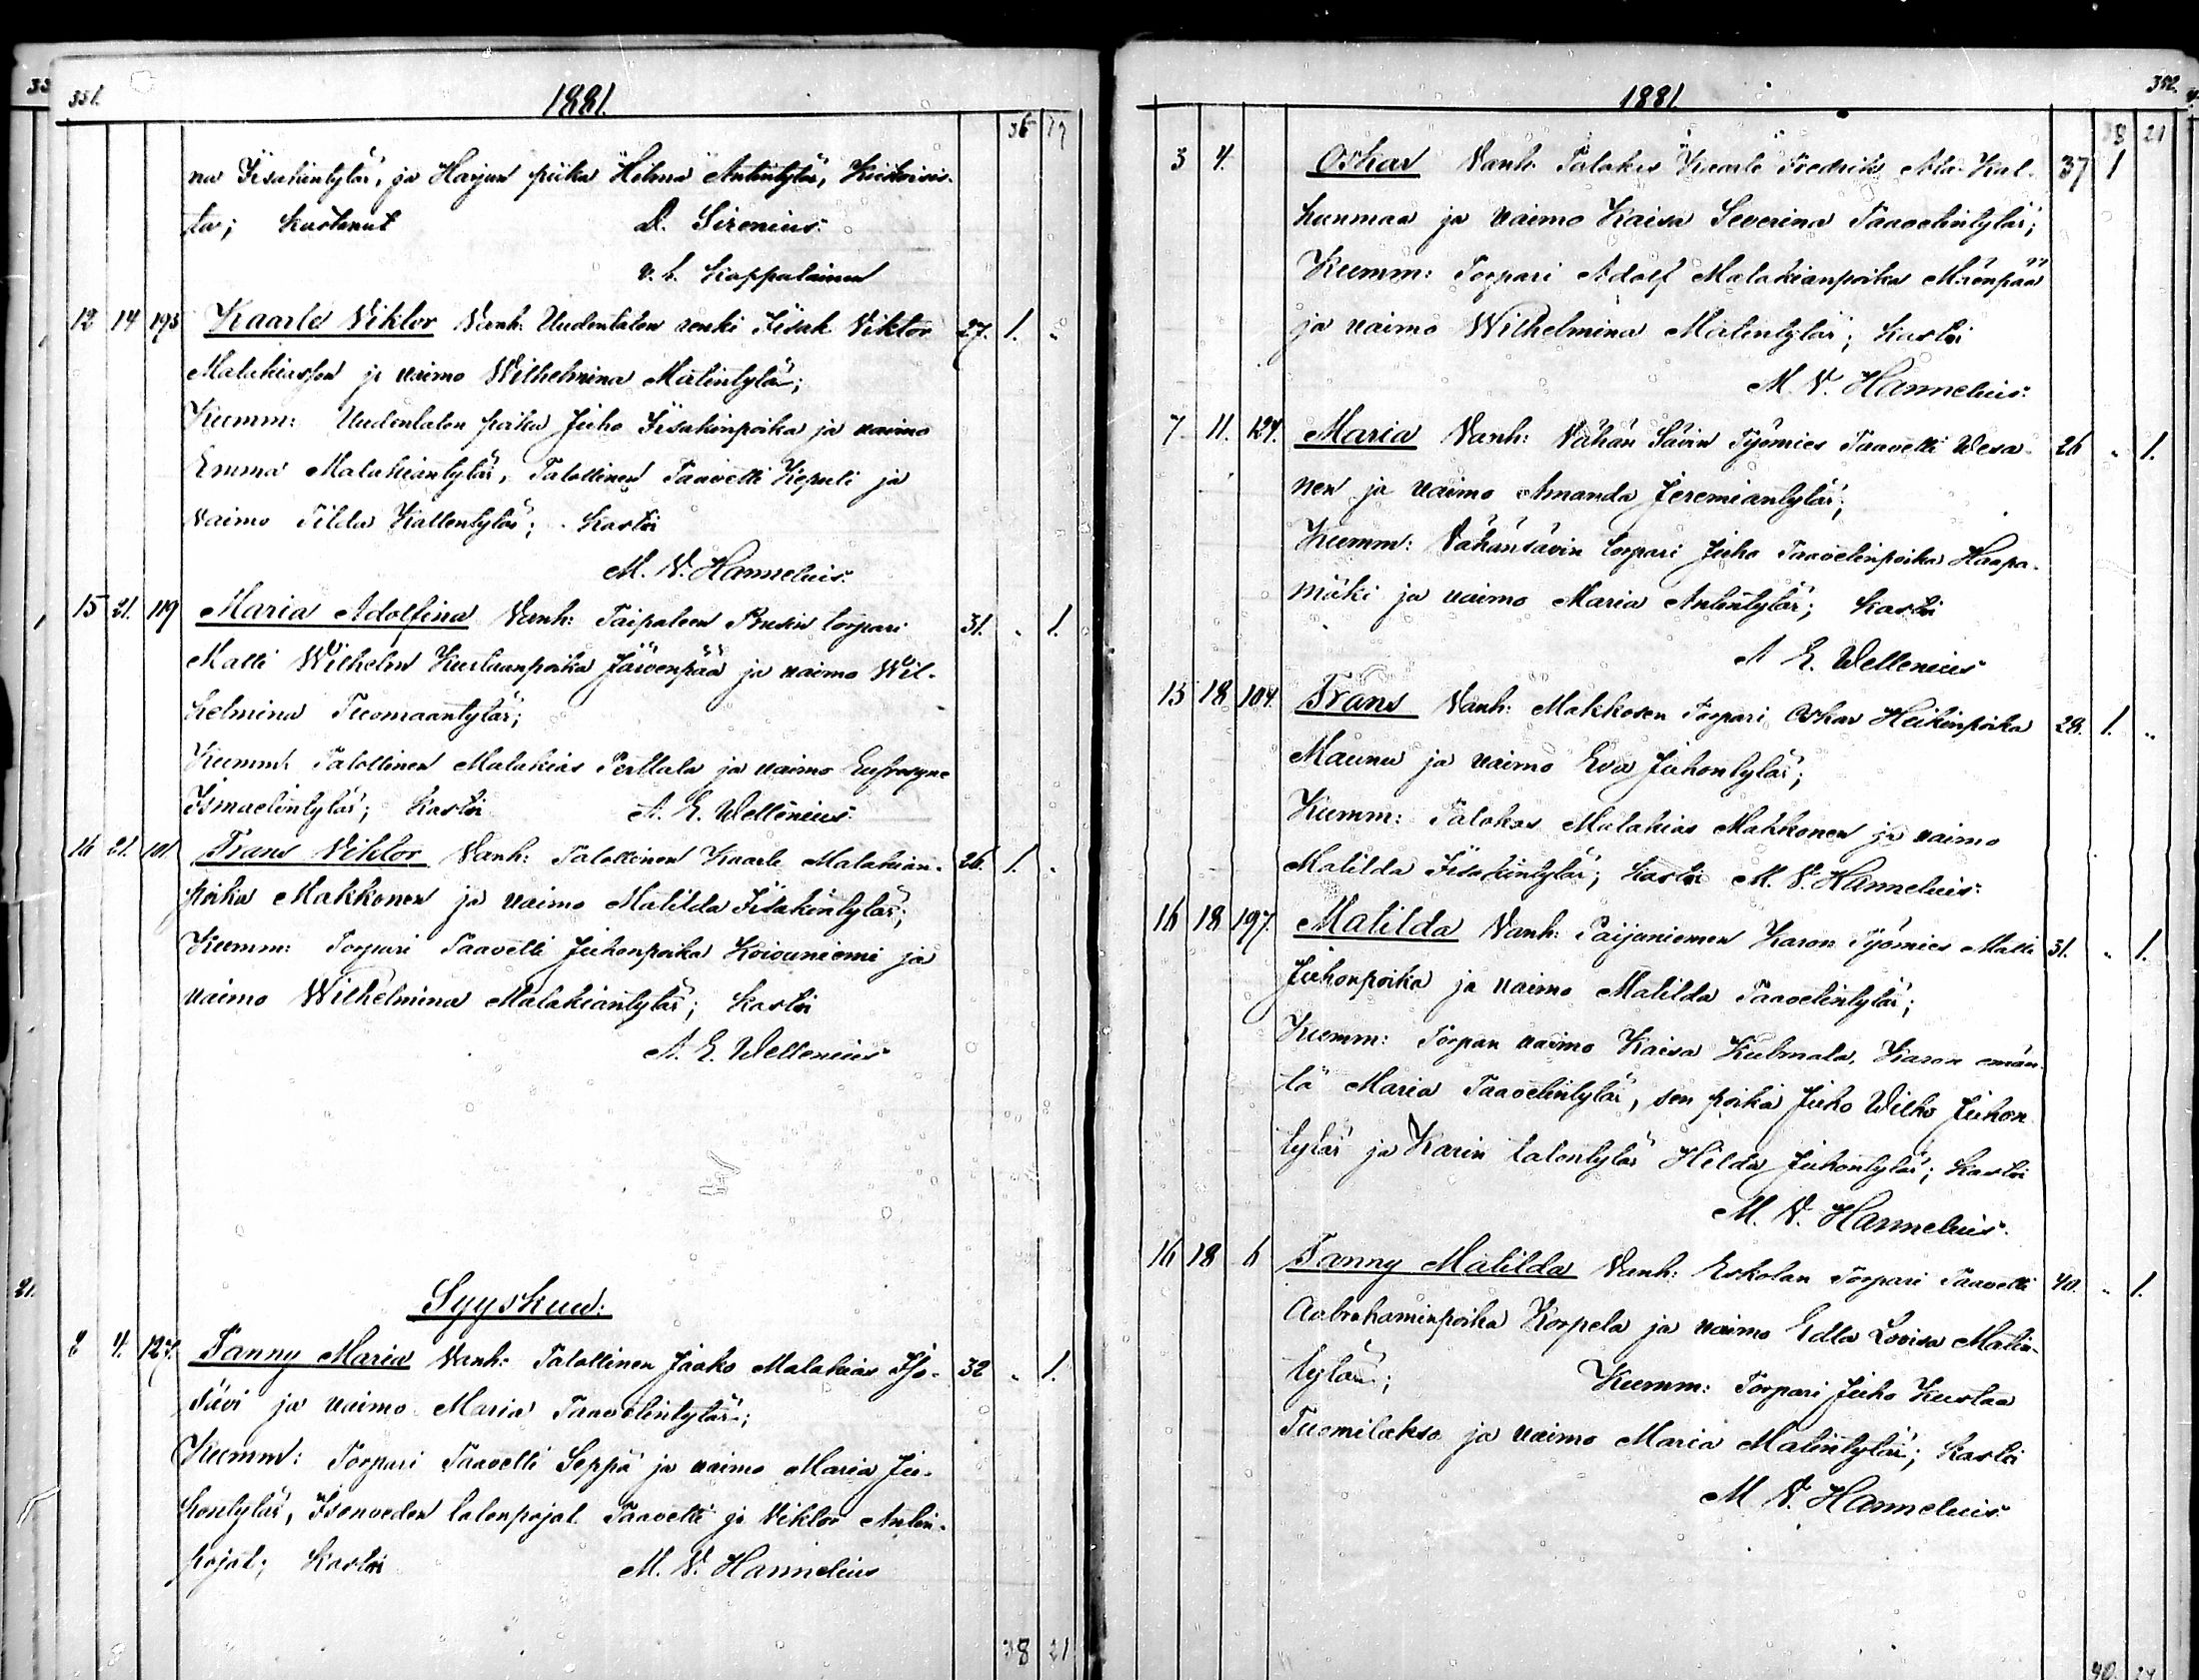 351.
1881.
36 17
na Iisakintytär, ja Harjun piika Helma Antintytär,
ta; kastanut D. Sirenius.
v. t. kappalainen
12 14 193 Kaarle Viktor Vanh. Uudentalon renki Iisak Viktor 27. 1. "
Malakiasson ja vaimo Wilhelmina Matintytär;
Kumm: Uudentalon poika Juho Iisakinpoika ja vaimo
Emma Malakiantytär, Talollinen Taavetti Kepuli ja
vaimo Tilda Kallentytär; kastoi
M. V. Hannelius.
15 21. 119 Maria Adolfina Vanh: Taipaleen Rusin torpari 31. " 1.
Matti Wilhelm Kustaanpoika Järvenpää ja vaimo Wil-
helmina Tuomaantytär;
Kumm. Talollinen Malakias Perttala ja vaimo Eufrosyne
Ismaelintytär; kastoi A. E. Wellenius.
16 21. 101 Frans Viktor Vanh: Talollinen Kaarle Malakian- 26. 1. "
poika Makkonen ja vaimo Matilda Iisakintytär;
Kumm: Torpari Taavetti Juhonpoika Koivuniemi ja
vaimo Wilhelmina Malakiantytär; kastoi
A. E. Wellenius
Syyskuu.
2 4. 127. Fanny Maria Vanh: Talollinen Jaako Malakias Iso- 32 " 1.
sävi ja vaimo Maria Taavetintytär;
Kumm: Torpari Taavetti Seppä ja vaimo Maria Ju-
hontytär, Isonveden talonpojat Taavetti ja Viktor Antin-
pojat; kastoi M. V. Hannelius
38 21
1881.
352.
38 21
3 4. Oskar Vanh. Talokas Kaarle Fredrik Ala-Kul-
37 1
hunmaa ja vaimo Kaisa Severina Taavetintytär;
Kumm: Torpari Adolf Malakianpoika Mäenpää
ja vaimo Wilhelmina Matintytär; kastoi
M. V. Hannelius.
7 11. 124. Maria Vanh: Vähän Sävin Työmies Taavetti Wesa- 26 " 1.
nen ja vaimo Amanda Jeremiantytär;
Kumm: Vähänsävin torpari Juho Taavetinpoika Haapa-
mäki ja vaimo Maria Antintytär; kastoi
A E. Wellenius
15 18 104. Frans Vanh: Makkosen Torpari Oskar Heikinpoika 28. 1. "
Maunu ja vaimo Eva Juhontytär;
Kumm: Talokas Malakias Makkonen ja vaimo
Matilda Iisakintytär; kastoi M. V. Hannelius.
16 18 197. Matilda Vanh: Paijaniemen Karon Työmies Matti 31. " 1.
Juhonpoika ja vaimo Matilda Taavetintytär;
Kumm: Torpan vaimo Kaisa Kulmala, Karon emän-
tä Maria Taavetintytär, sen poika Juho Wilho Juhon
tytär ja Karin talontytär Hilda Juhontytär; kastoi
M. V. Hannelius.
16 18 6 Fanny Matilda Vanh: Eskolan Torpari Taavetti 40. " 1.
Aabrahaminpoika Korpela ja vaimo Edla Lovisa Matin-
tytär; Kumm: Torpari Juho Kustaa
Tuomilakso ja vaimo Maria Matintytär; kastoi
M V. Hannelius
40.